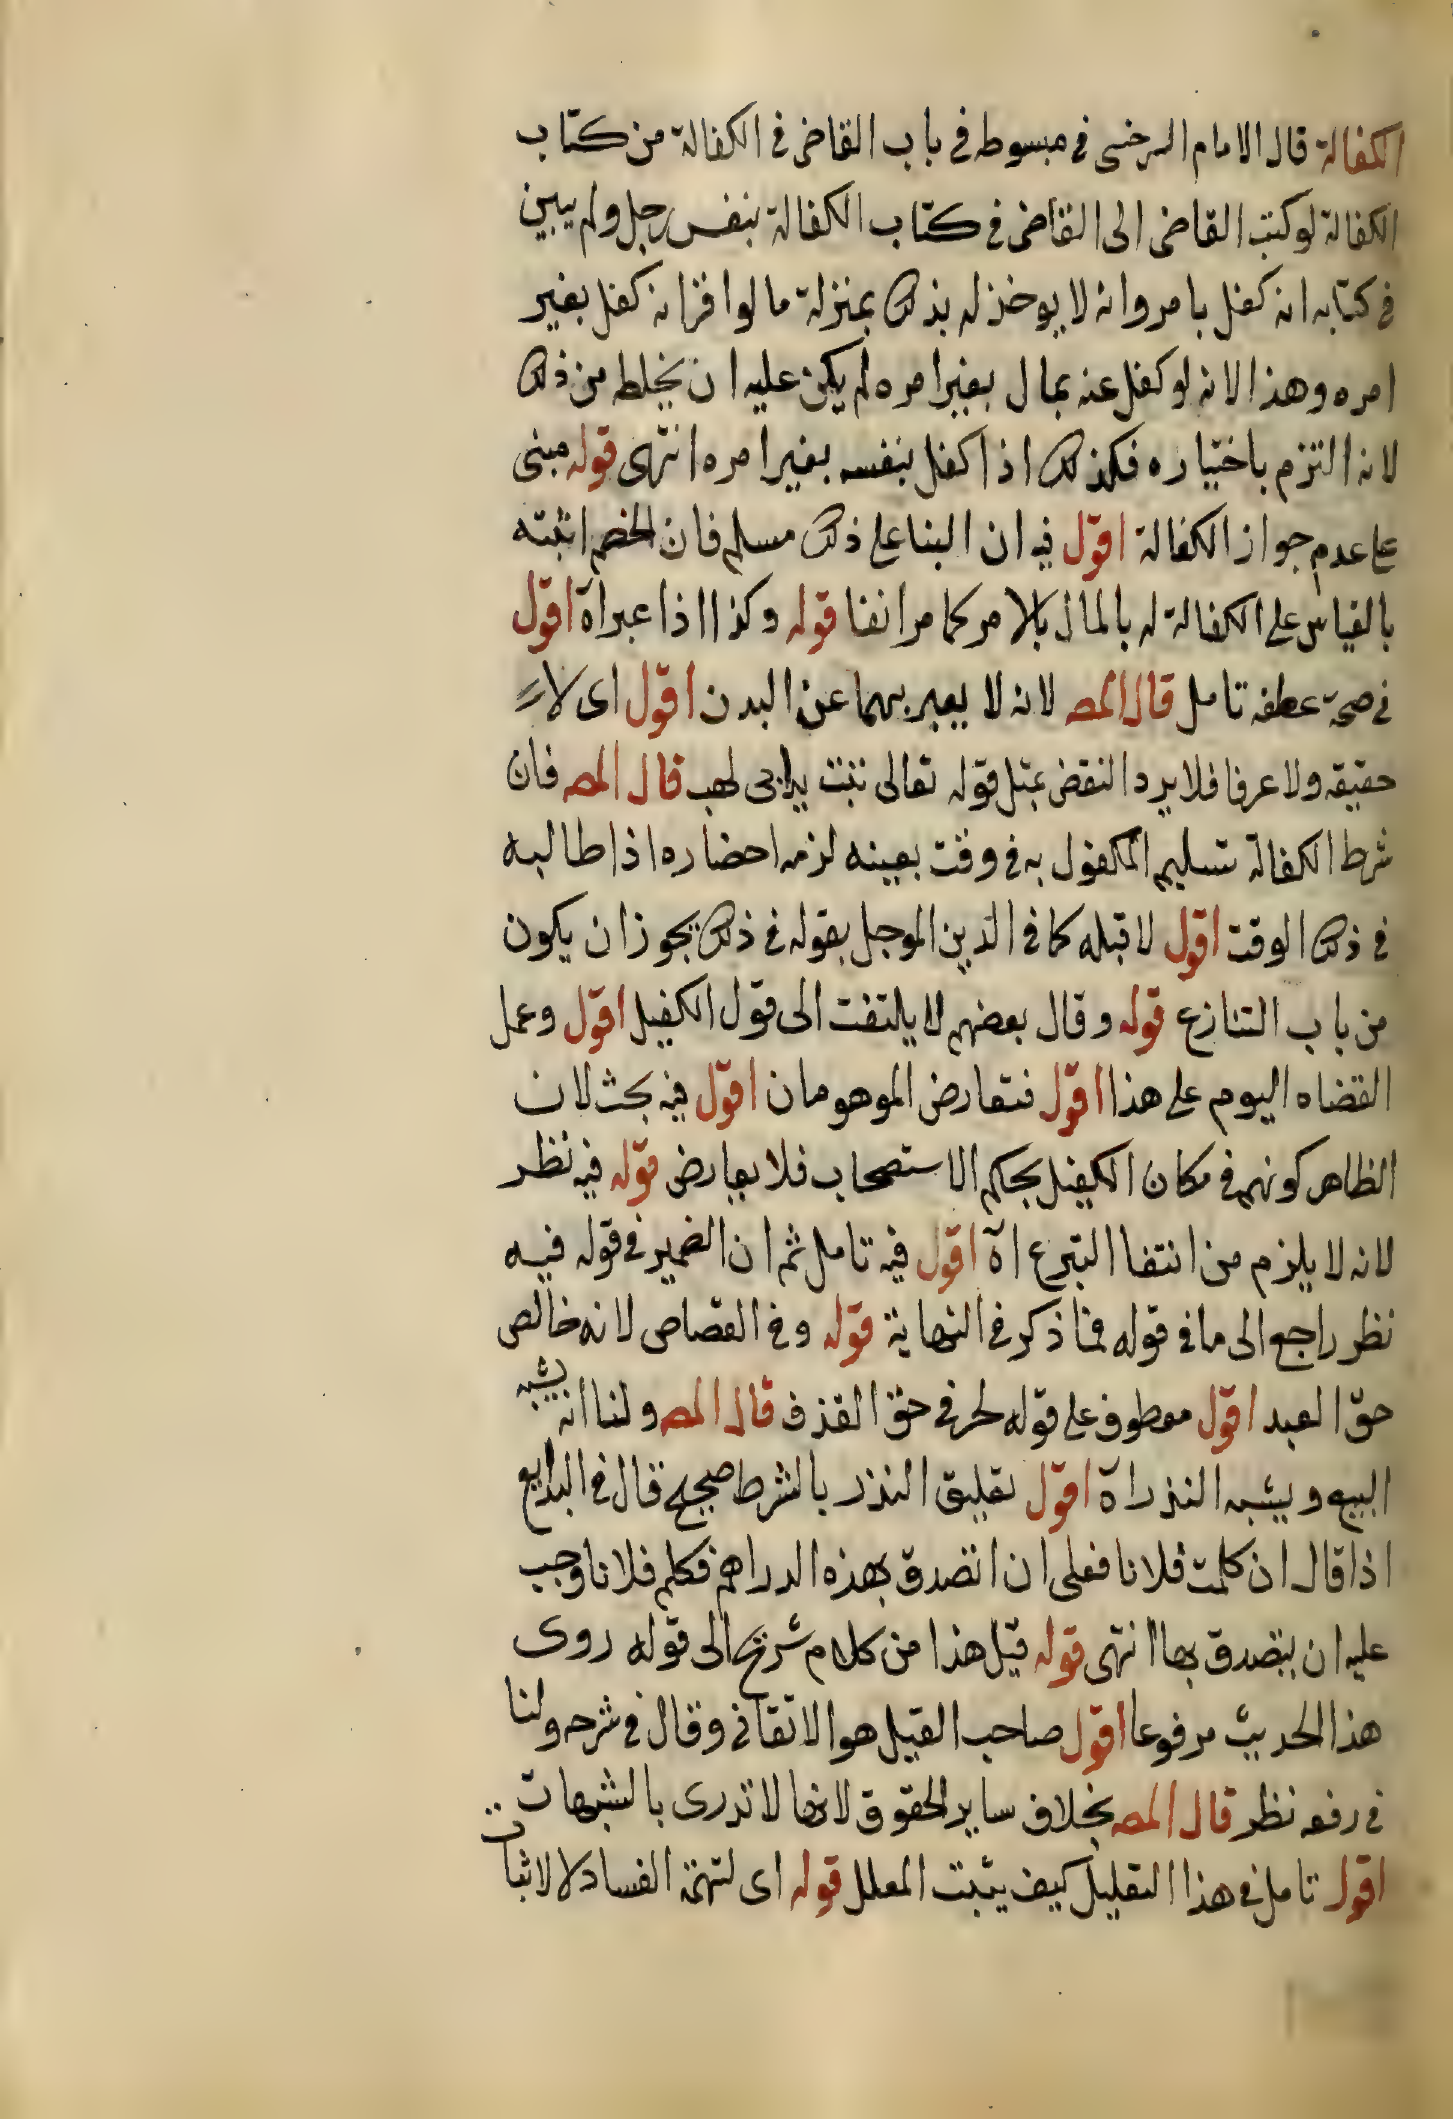 الكفالة قال الامام السرخسى فى مبسوطه فى باب القاضى فى الكفالة من كتاب
الكفالة لو كتب القاضى الى القاضى فى كتاب الكفالة بنفس رجل ولم يبين
فى كتابه انه كفل بامره وانه لا يوخذ له بذلك بمنزلة ما لو اقر انه كفل بغير
امره وهذا لانه لو كفل عنه بمال بغير امره لم يكن عليه ان يخلطه من ذلك
لانه التزم باختياره فكذلك اذا كفل بنفسه بغير امره انتهى قوله مبنى
على عدم جواز الكفالة اقول فيه ان البنا على ذلك مسلم فان الخصم اثبته
بالقياس على الكفالة له بالمال بلا امر كما مر انفا قوله وكذا اذا عبر اه اقول
فى صحة عطفه تامل قال المص لانه لا يعبر بهما عن البدن اقول اى لا
حقيقه ولا عرفا فلا يرد النقض بمثل قوله تعالى تبت يدا ابى لهب قال المص فان
شرط الكفالة تسليم المكفول به فى وقت بعينه لزمه احضاره اذا طالبه
فى ذلك الوقت اقول لا قبله كما فى الدين الموجل بقوله فى ذلك يجوز ان يكون
من باب التنازع قوله وقال بعضهم لا يلتفت الى قول الكفيل اقول وعمل
القضاه اليوم على هذا اقول فتعارض الموهومان اقول فيه بحث لان
الظاهر كونهم فى مكان الكفيل بحكم الاستصحاب فلا يعارض قوله فيه نظر
لانه لا يلزم من انتفا التبرع اه اقول فيه تامل ثم ان الضمير فى قوله فيه
نظر راجع الى ما فى قوله فما ذكر فى النهاية قوله وفى القصاص لانه خالص
حق العبد اقول معطوف على قوله لحر فى حق القذف قال المص ولنا انه يشبه
البيع ويشبه النذر اه اقول تعليق النذر بالشرط صحيح قال فى البدايع
اذا قال ان كلمت فلانا فعلى ان اتصدق بهذه الدراهم فكلم فلانا وجب
عليه ان يتصدق بها انتهى قوله قيل هذا من كلام شريح الى قوله روى
هذا الحديث مرفوعا اقول صاحب القيل هو الاتقانى وقال فى شرحه ولنا
فى رفعه نظر قال المص بخلاف ساير الحقوق لانها لا تدرى بالشبهات
اقول تامل فى هذا التعليل كيف يثبت المعلل قوله اى لتهمة الفساد لا لاثبات